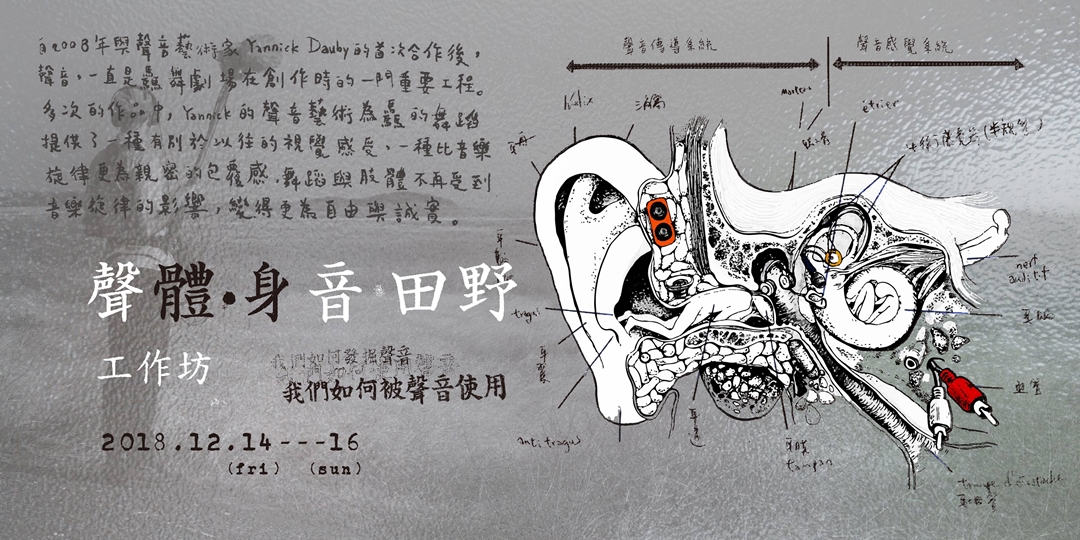 自2008年與聲音藝術家 Yannick Dauby的首次合作後，
聲音，一直是驫舞劇場在創作時的一門重要工程。
多次的作品中，Yannick 的聲音藝術為驫的舞蹈
提供了一種有別於以往的視覺感受，一種比音樂
旋律更為親密的包覆感，舞蹈與肢體不再受到
音樂旋律的影響，變得更為自由與誠實。
聲體•身音田野
工作坊
我們如何發掘聲音
我們如何被聲音使用
2018.12.14---16
(fri) (sun)
聲音傳導系統
聲音感覺系統
hélix
étrier
nerf
auditif
tragus
antitragus
耳膜
tympan
血管